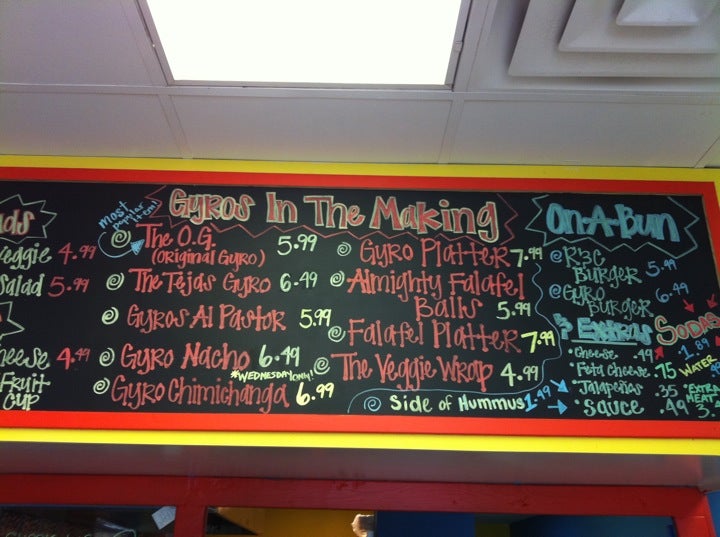 ads
Veggie 4.99
Salad 5.99
cheese 4.49
Fruit
Cup
most
popular
item!
Gyros In The Making
The O.G. 5.99
(original Gyro)
The Tejas Gyro 6.49
Gyros Al Pastor 5.99
Gyro Nacho 6.49
*WEDNESDAY only!
Gyro Chimichanga 6.99
Gyro Platter 7.99
Almighty Falafel
Balls 5.99
Falafel Platter 7.99
The Veggie Wrap 4.99
Side of Hummus 1.49
On-A-Bun
R3C
Burger 5.49
Gyro
Burger 6.49
Extras
Cheese .49
Feta Cheese .75
Jalapeñas .35
Sauce .49
Sodas
1.89
WATER
*EXTRA
MEAT
3.